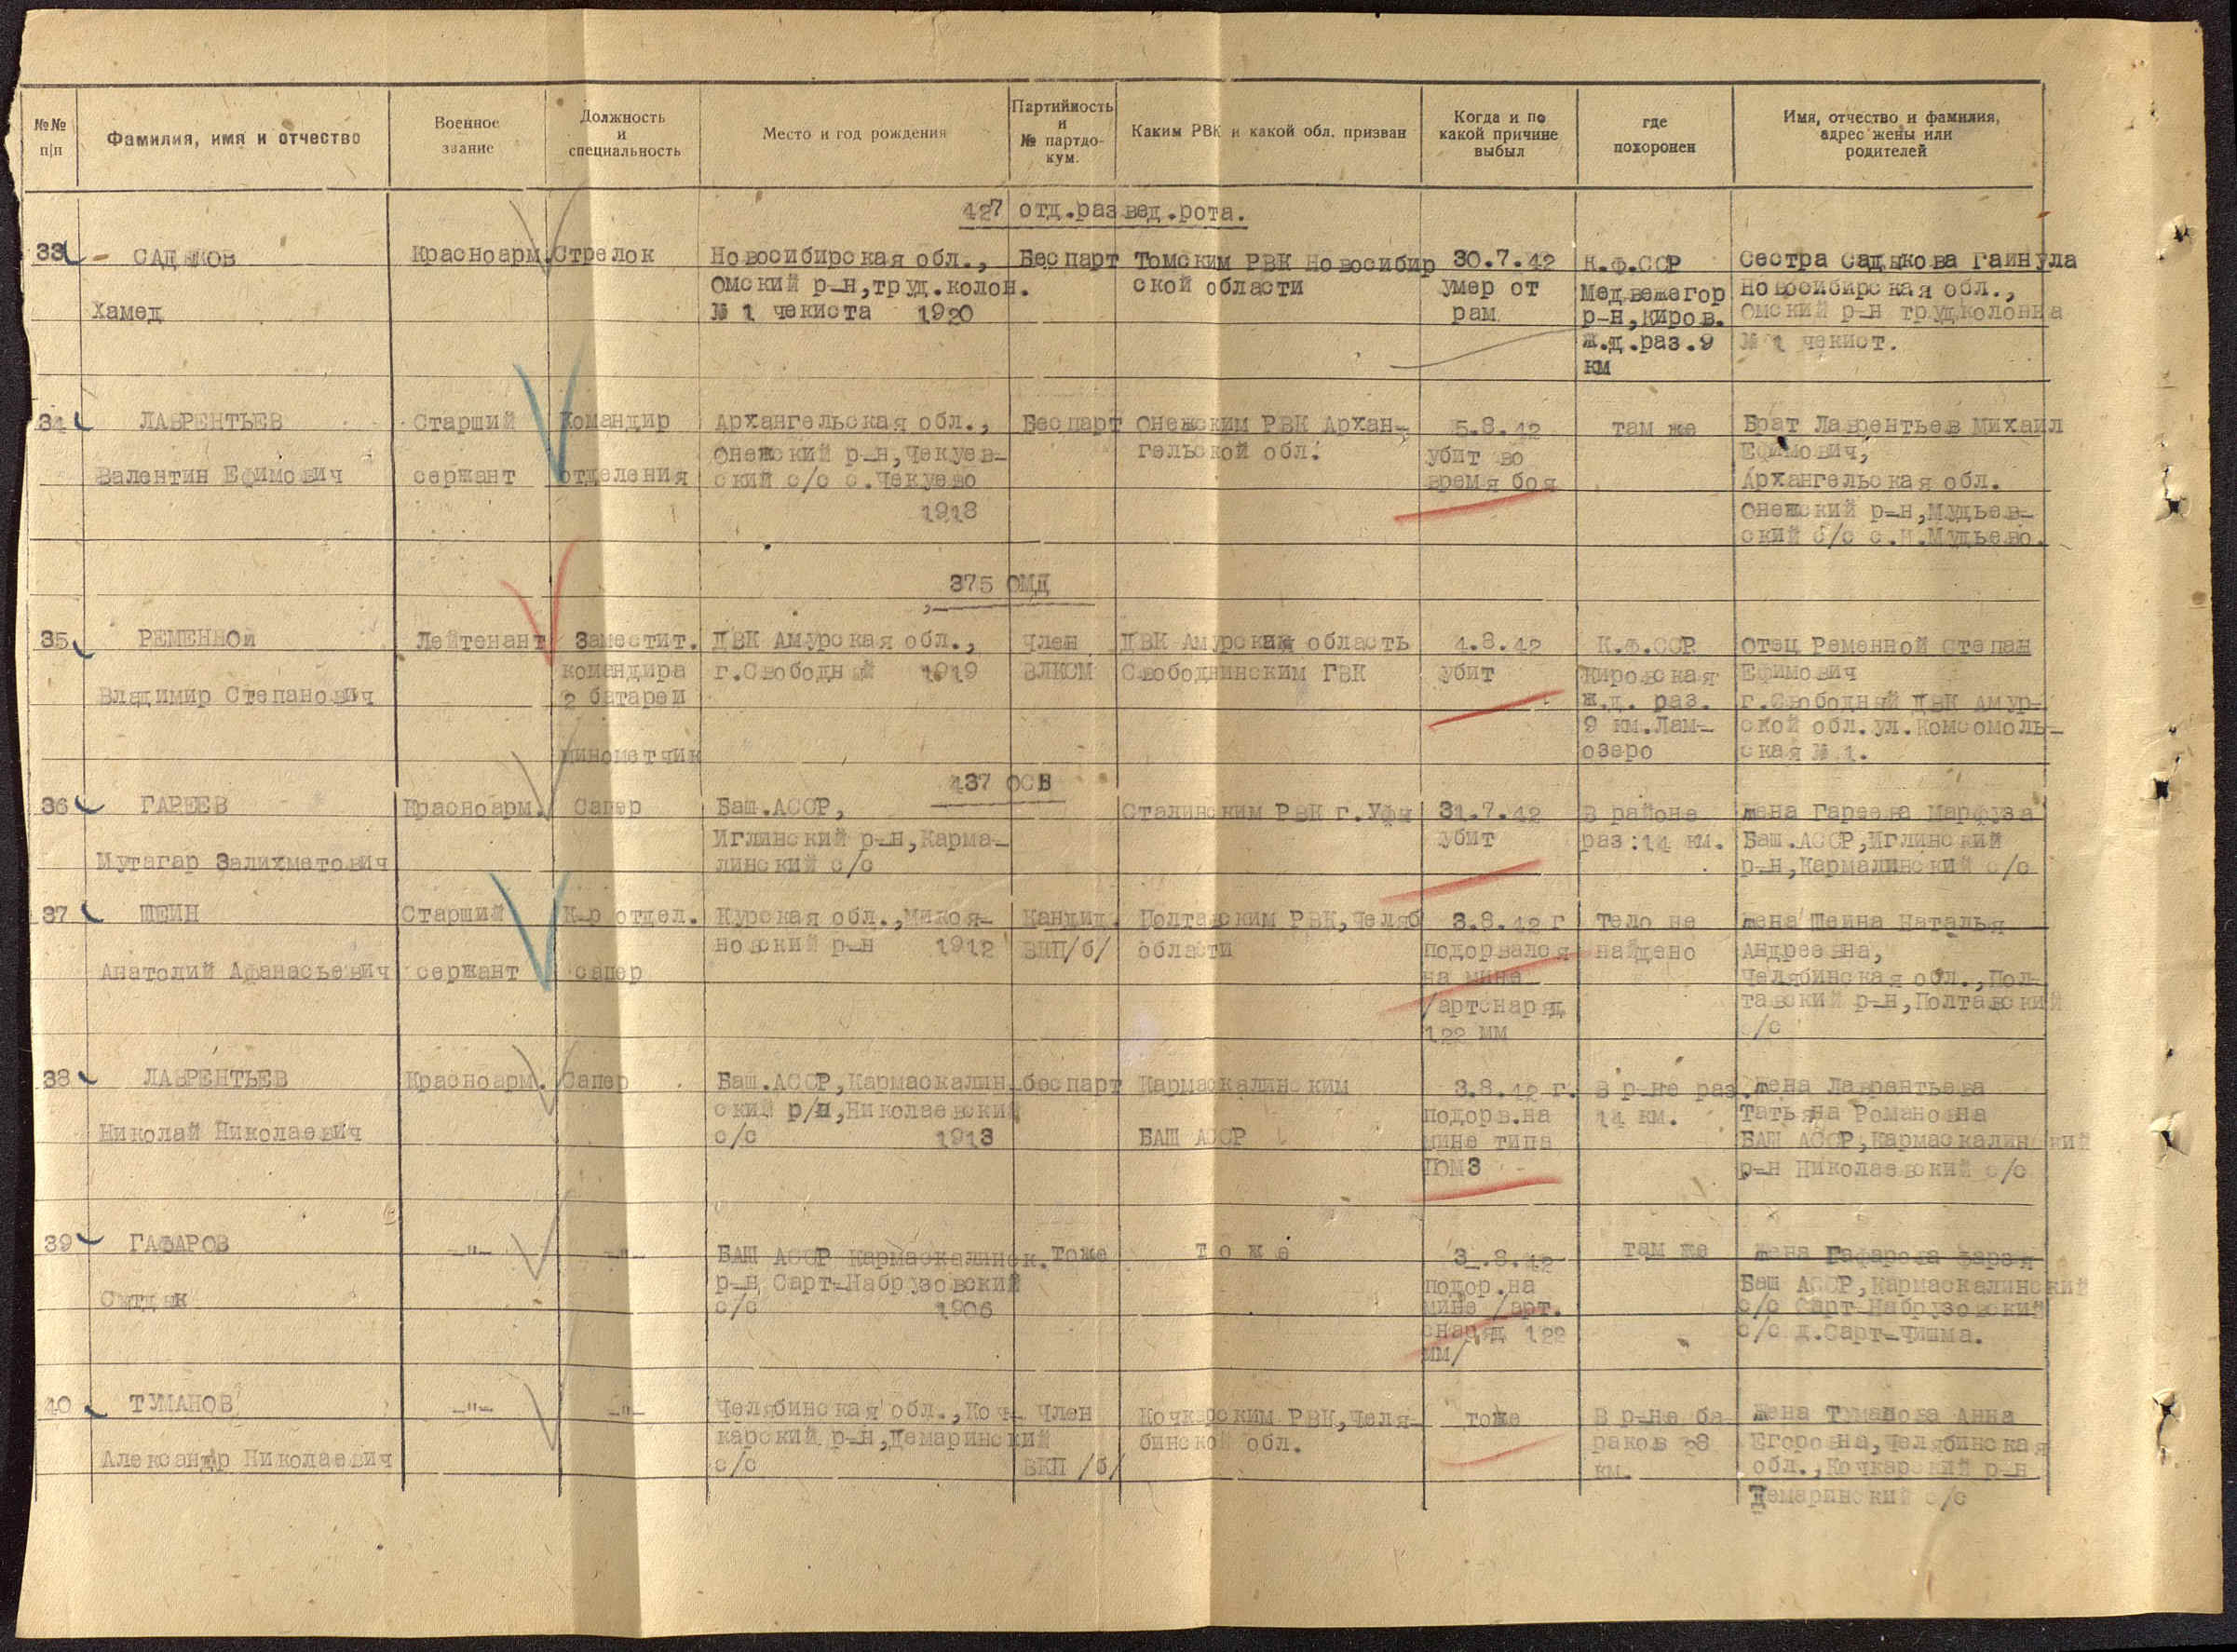 №№ п|п
Фамилия, имя и отчество
Военное звание
Должность и специальность
Место и год рождения
Партийность и № партдокум.
Каким РВК и какой обл. призван
Когда и по какой причине выбыл
где похоронен
Имя, отчество и фамилия, адрес жены или родителей
427 отд.развед.рота.
33
САДЫКОВ
Хамед
Красноарм.
Стрелок
Новосибирская обл.,
Омский р-н,труд.колон.
№ 1 чекиста 1920
Беспарт
Томским РВК Новосибир
ской области
30.7.42
умер от
рам
К.Ф.ССР
Медвежегор
р-н,киров.
ж.д.раз.9
км
Сестра Садыкова Гаинула
Новосибирская обл.,
Омский р-н трудколонна
№ 1 чекист.
34
ЛАВРЕНТЬЕВ
Валентин Ефимович
Старший
сержант
Командир
отделения
Архангельская обл.,
Онежский р-н,Чекуев-
ский с/с с.Чекуево
1918
Беспарт
Онежским РВК Архан-
гельской обл.
5.8.42
убит во
время боя
там же
Брат Лаврентьев Михаил
Ефимович,
Архангельская обл.
Онежский р-н,Мудьев-
ский с/с с.Н.Мудьево.
375 ОМД
35
РЕМЕННОЙ
Владимир Степанович
Лейтенант
Заместит.
командира
2 батареи
минометчик
ДВК Амурская обл.,
г.Свободный 1919
Член
ВЛКСМ
ДВК Амурская область
Свободнинским ГВК
4.8.42
убит
К.Ф.ССР
Кировская
ж.д. раз.
9 км.Лам-
озеро
Отец Ременной Степан
Ефимович
г.Свободный ДВК Амур-
ской обл.ул.Комсомоль-
ская № 1.
437 ОСБ
36
ГАРЕЕВ
Мутагар Залихматович
Красноарм.
Сапер
Баш.АССР,
Иглинский р-н,Карма-
линский с/с
Сталинским РВК г.Уфы
31.7.42
убит
В районе
раз:14 км.
жена Гареева Марфуза
Баш.АССР,Иглинский
р-н,Кармалинский с/с
37
ШЕИН
Анатолий Афанасьевич
Старший
сержант
К-р отдел.
сапер
Курская обл.,Микоя-
новский р-н 1912
Кандид.
ВКП/б/
Полтавским РВК,Челяб
области
3.8.42 г
подорвался
на мине
/артснаряд
122 мм
Тело не
найдено
жена Шеина Наталья
Андреевна,
Челябинская обл.,Пол-
тавский р-н,Полтавский
с/с
38
ЛАВРЕНТЬЕВ
Николай Николаевич
Красноарм.
Сапер
Баш.АССР,Кармаскалин-
ский р/н,Николаевский
с/с 1913
беспарт
Кармаскалинским
БАШ АССР
3.8.42 г.
подорв.на
мине типа
ПОМЗ
В р-не раз.
14 км.
жена Лаврентьева
Татьяна Романовна
БАШ АССР,Кармаскалинский
р-н Николаевский с/с
39
ГАФАРОВ
Сытдык
-"-
-"-
БАШ АССР Кармаскалинск.
р-н Сарт-Набрузовский
с/с 1906
тоже
тоже
3.8.42
подор.на
мине /арт.
снаряд 122
мм/
там же
жена Гафарова Фарзя
Баш АССР,Кармаскалинский
с/с Сарт-Набрузовский
с/с д.Сарт-Чишма.
40
ТУМАНОВ
Александр Николаевич
-"-
-"-
Челябинская обл.,Коч-
карский р-н,Демаринский
с/с
Член
ВКП /б/
Кочкарским РВК,Челя-
бинской обл.
тоже
В р-не ба
раков 28
км.
жена Туманова Анна
Егоровна,Челябинская
обл.,Кочкарский р-н
Демаринский с/с